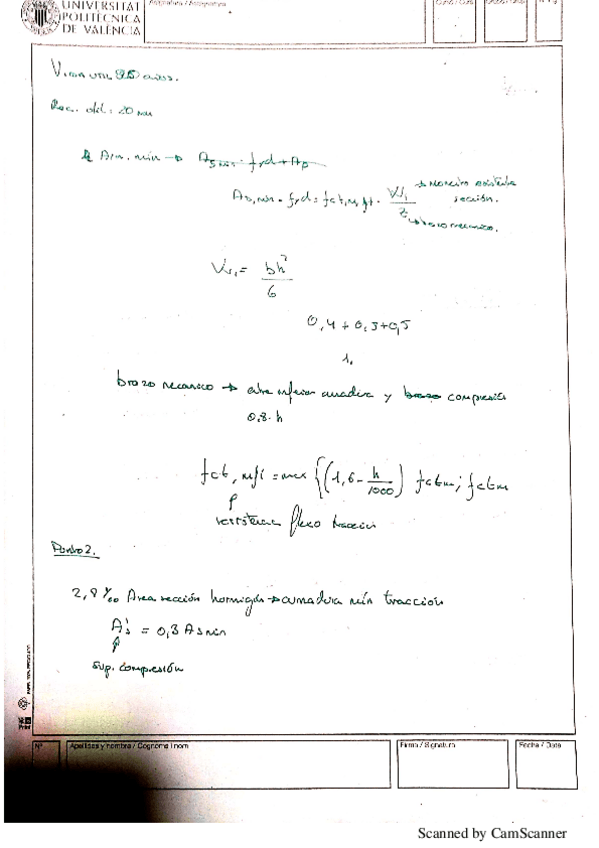 UNIVERSITAT
POLITÈCNICA
DE VALÈNCIA
Asignatura / Assignatura
Vida útil 25 años.
Rec. útil: 20 mm
Arm. min → As min · fyd + Ap
As,min · fyd = fct,m,fl · W1/z
→ Momento
sección.
brazo mecanico.
W1 = bh²/6
0,4 + 0,3 + 0,5
1.
brazo mecanico → entre inferior armadura y brazo compresión
0.8 · h
fct,m,fl = max {(1,6 - h/1000) fctm; fctm
resistencia flexo tracción
Punto 2.
2,8 ‰ Area sección hormigón → armadura mín tracción
A's = 0,3 As min
sup. compresión
Nº
Apellidos y nombre / Cognoms i nom
Firma / Signatura
Fecha / Data
Scanned by CamScanner